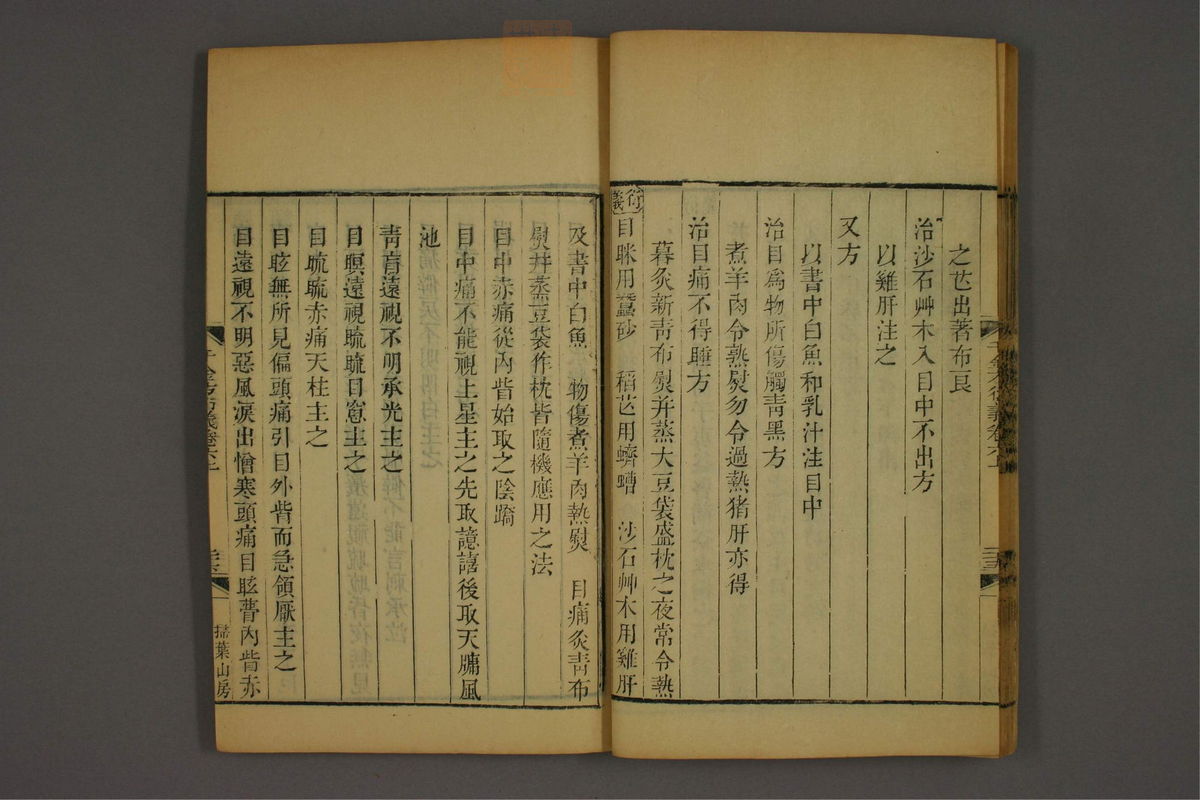 之芯出著布艮
治沙石艸木入目中不出方
以雞肝注之
又方
以書中白魚和乳汁注目中
治目爲物所傷觸靑黑方
煮羊肉令熟熨勿令過熱猪肝亦得
治目痛不得睡方
暮炙新靑布熨并蒸大豆袋盛枕之夜常令熱
衍義
目眯用蠶砂 稻芒用蠐螬 沙石艸木用雞肝
及書中白魚 物傷煮羊肉熱熨 目痛炙靑布
熨并蒸豆袋作枕皆隨機應用之法
目中赤痛從內眥始取之陰蹻
目中痛不能視上星主之先取譩譆後取天牖風
池
靑盲遠視不明承光主之
目瞑遠視䀮䀮目窻主之
目䀮䀮赤痛天柱主之
目眩無所見偏頭痛引目外眥而急頷厭主之
目遠視不明惡風淚出憎寒頭痛目眩瞢內眥赤
千金方衍義卷六上
掃葉山房